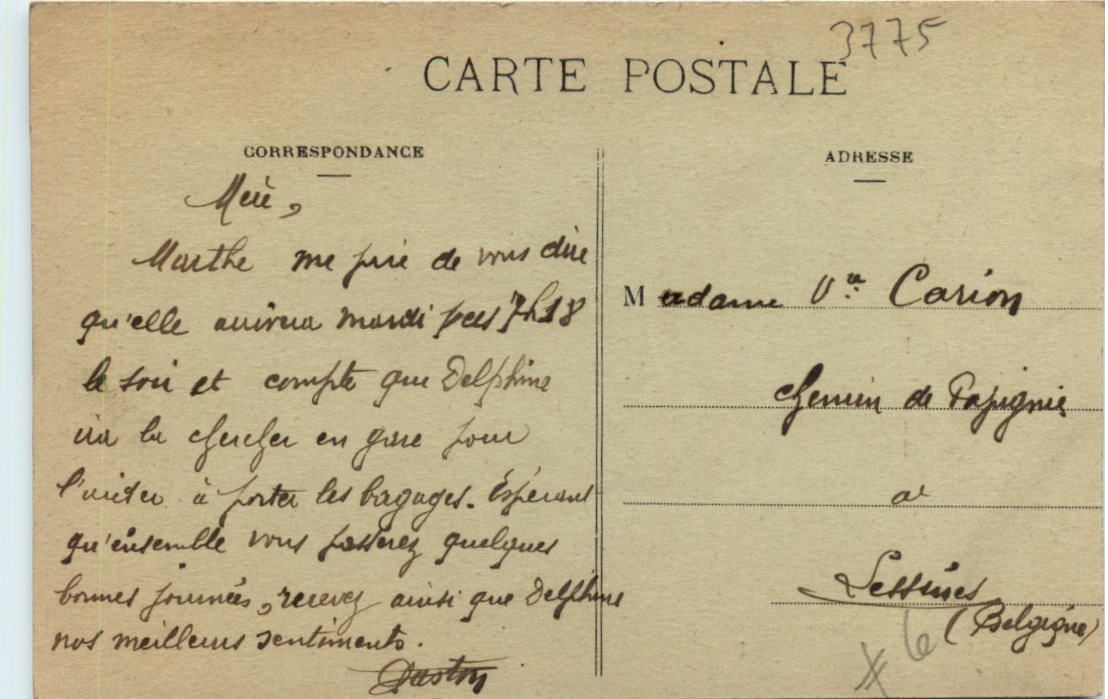 3775
CARTE POSTALE
CORRESPONDANCE
Mère,
Marthe me prie de vous dire
qu'elle arrivera mardi vers 7h18
le soir et compte que Delphine
ira la chercher en gare pour
l'aider à porter les bagages. Espérant
qu'ensemble vous passerez quelques
bonnes journées, recevez ainsi que Delphine
nos meilleurs sentiments.
Gaston
ADRESSE
Madame Vve Carion
chemin de Papignies
à
Lessines
(Belgique)